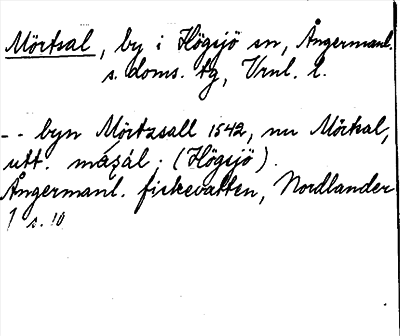 Mörtsal, by i Högsjö sn, Ångermanl.
s. doms. tg, Vrnl. l.
-- byn Mörtzsall 1542, nu Mörtsal,
utt. mazál. (Högsjö).
Ångermanl. fiskevatten, Nordlander
1 s. 10